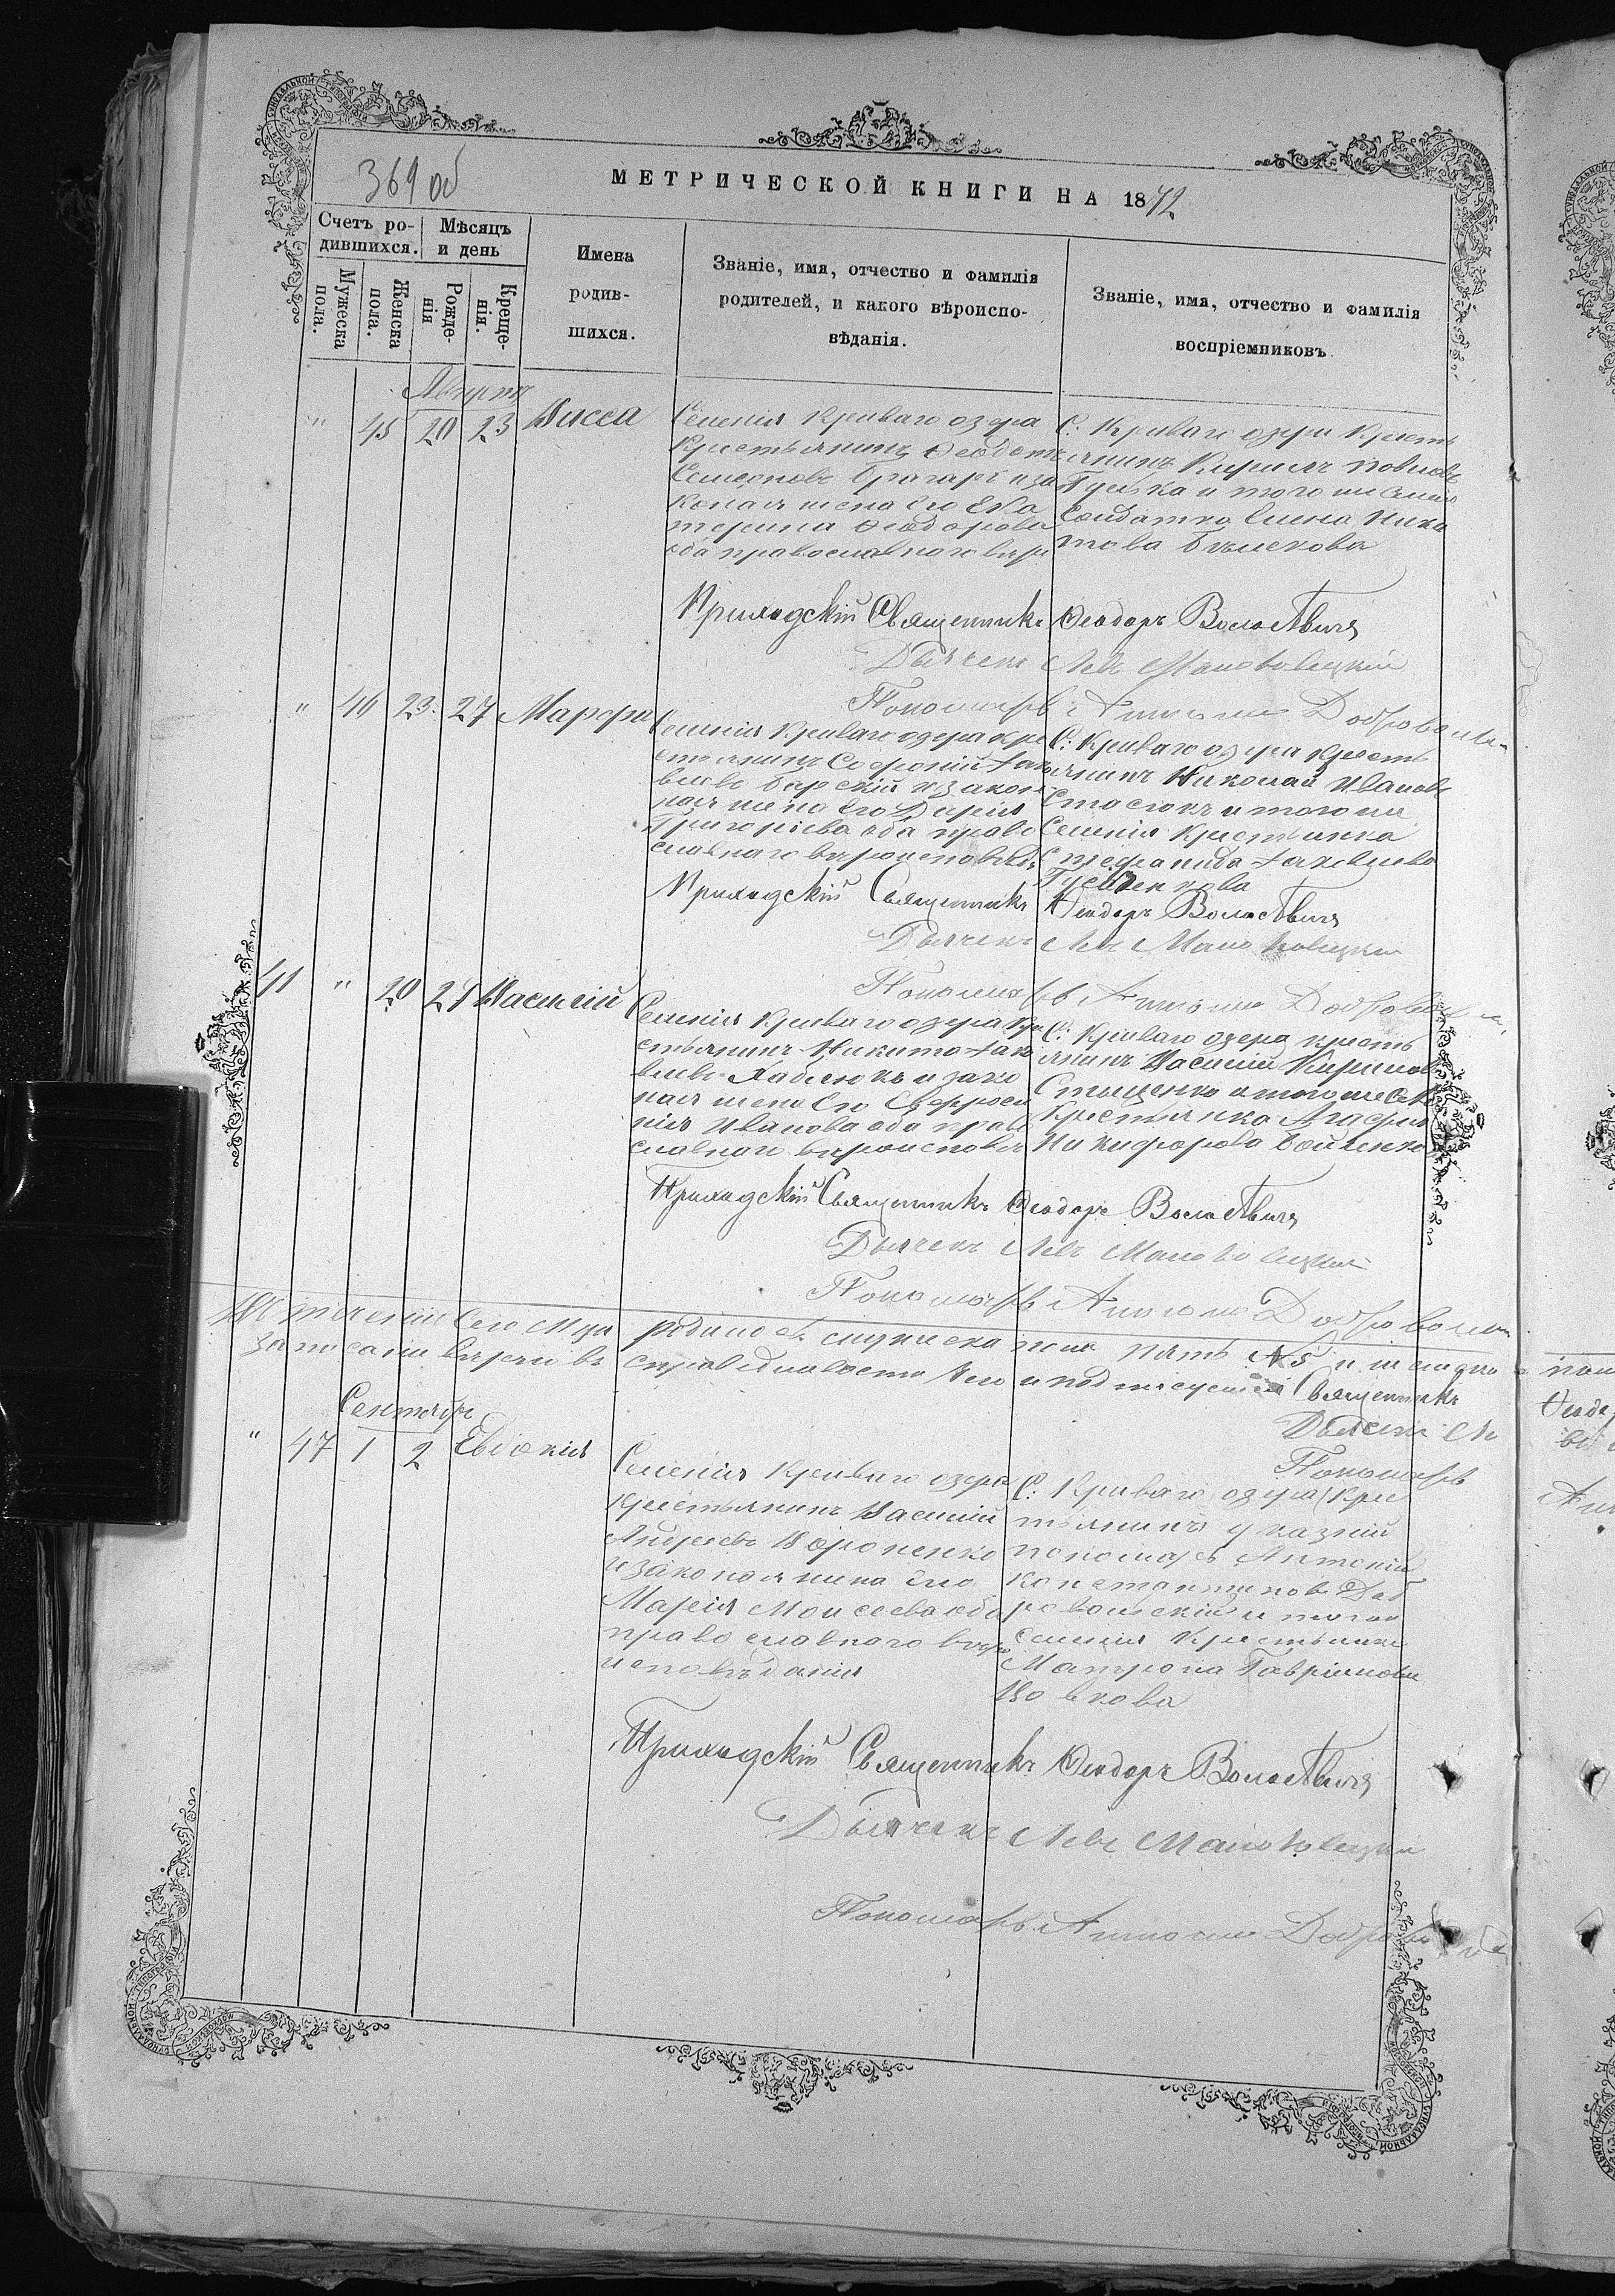 369 об
МЕТРИЧЕСКОЙ КНИГИ НА 1872
Счетъ ро-
дившихся.
Мѣсяцъ
и день
Мужеска
пола.
Женска
пола.
Рожде-
нія
Креще-
нія.
Имена
родив-
шихся.
Званіе, имя, отчество и фамилія
родителей, и какого вѣроиспо-
вѣданія.
Званіе, имя, отчество и фамилія
воспріемниковъ
Августъ
" 45 20 23 Васса
Селенія Криваго озера
Крестьянинъ Ѳеодотъ
Симеоновъ и за
коная жена его Ека
терина Ѳеодорова
оба православного вѣро
С: Криваго озера Кресть
янинъ Кирилъ Павловъ
Гулька и того же селен
Солдатка Елена Ники
това
Приходскій Священникъ Ѳеодоръ
Дьячекъ Левъ
Пономарь Антоній Доброволь
" 46 23 27 Марфа
Селенія Криваго озера кре
стьянинъ Софроній Іако
влевъ Барскій и закон
ная жена его Дарія
Григоріева оба право
славного вѣроисповѣд
С: Криваго озера Кресть
янинъ Николай Ивановъ
Стасюкъ и того же
Селенія Крестьянка
Стефанида Іаковлева
Приходскій Священникъ Ѳеодоръ
Дьячекъ Левъ
Пономарь Антоній Доброволь
41 " 20 28 Василій
Селенія Криваго озера Кре
стьянинъ Никита Іако
влевъ и зако
ная жена его Евфроси
нія Иванова оба право
славного вѣроисповѣ
С: Криваго озера кресть
янинъ Василій Кириловъ
Стыценко и того же сел
Крестьянка Агафія
Никифорова Бойченко
Приходскій Священникъ Ѳеодоръ
Дьячекъ Левъ
Пономарь Антоній Доброволь
Въ теченіи сего м-ца родилось мужеска пола пять № 5 и женска
записаны вѣрно въ справедливости чего и подписуемся Священникъ
Дьячекъ Ле
Пономарь
Сентябрь
" 47 1 2 Евдокія
Селенія Криваго озера
Крестьянинъ Василій
Андреевъ Вороненко
и законая жена его
Марія Моисеева оба
православного вѣро
исповѣданія
С: Криваго озера Крес
тьянинъ указній
пономарь Антоній
Константиновъ Доб
ровольскій и того же
селенія Крестьянка
Матрона Гавріилова
Вовкова
Приходскій Священникъ Ѳеодоръ
Дьячекъ Левъ
Пономарь Антоній Доброволь